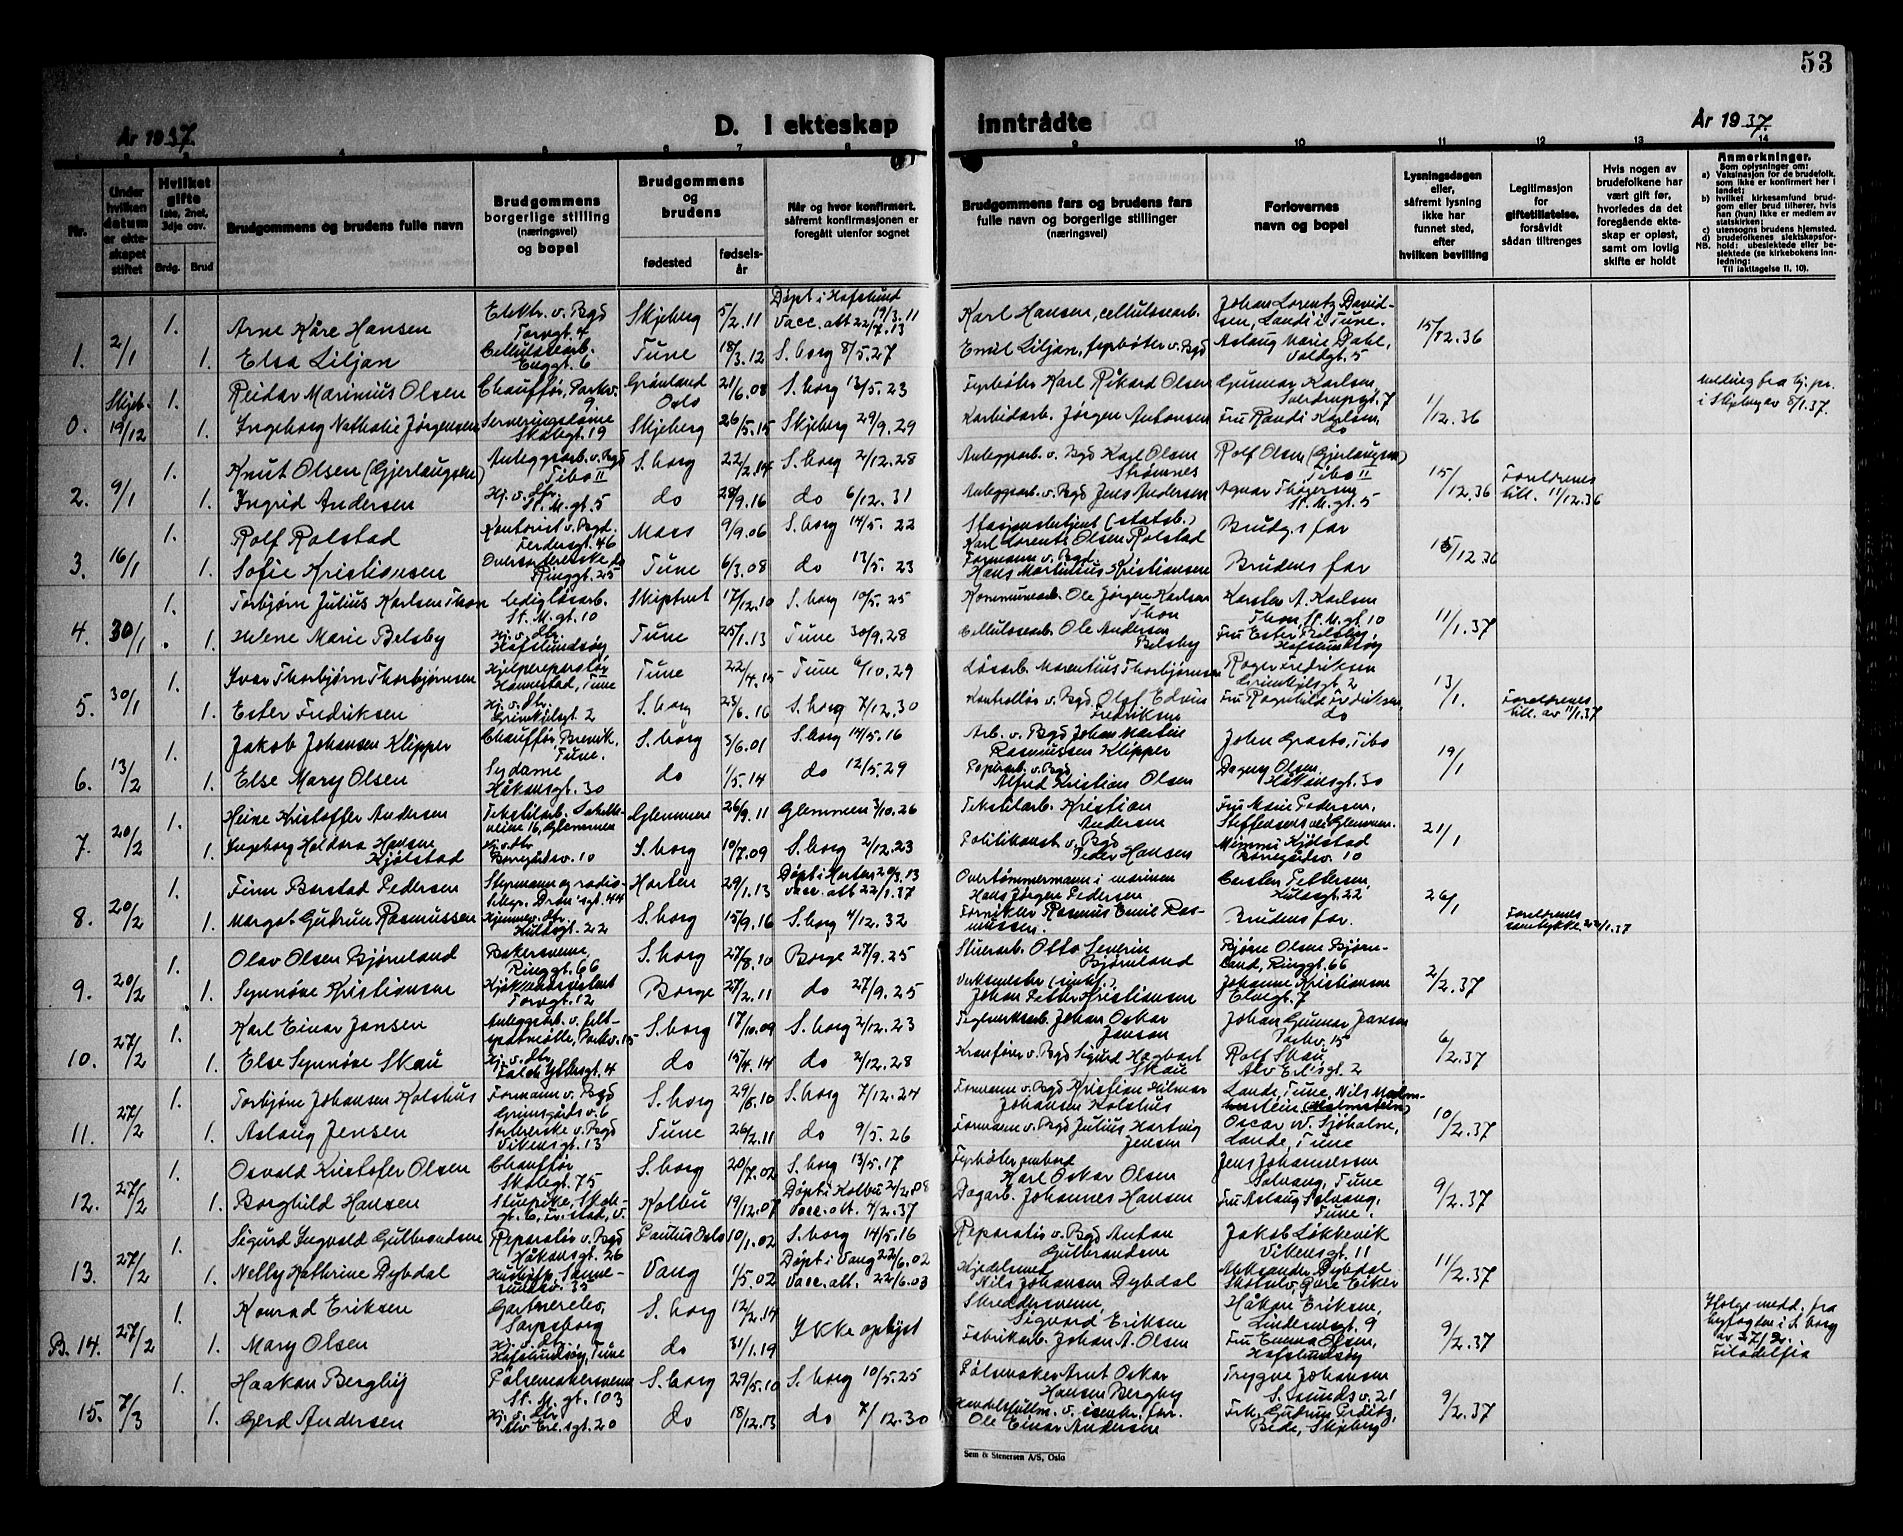 53
År 1937.
D. I ekteskap inntrådte
År 1937.
1 2 3 4 5 6 7 8 9 10 11 12 13 14
Nr.
Under hvilken datum er ekteskapet stiftet
Hvilket gifte 1ste, 2net, 3dje osv.
Brdg. Brud
Brudgommens og brudens fulle navn
Brudgommens borgerlige stilling (næringsvei) og bopel
Brudgommens og brudens
fødested
fødselsår
Når og hvor konfirmert, såfremt konfirmasjonen er foregått utenfor sognet
Brudgommens fars og brudens fars fulle navn og borgerlige stillinger (næringsvei)
Forlovernes navn og bopel
Lysningsdagen eller, såfremt lysning ikke har funnet sted, efter hvilken bevilling
Legitimasjon for giftetillatelse, forsåvidt sådan tiltrenges
Hvis nogen av brudefolkene har vært gift før, hvorledes da det foregående ekteskap er opløst, samt om lovlig skifte er holdt
Anmerkninger.
Som oplysninger om:
a) Vaksinasjon for de brudefolk, som ikke er konfirmert her i landet;
b) hvilket kirkesamfund brudgom eller brud tilhører, hvis han (hun) ikke er medlem av statskirken;
c) utensogns brudens hjemsted.
d) brudefolkenes slektskapsforhold: ubeslektede eller beslektede (se kirkebokens innledning:
NB.
Til iakttagelse II. 10).
1. 2/1 1. Arne Kåre Hansen Elektr. v. Bgd Torvgt. 4 Skjeberg 5/2.11 Døpt i Hafslund 19/3.11 Vacc. att 22/7.13 Karl Hansen, cellulosearb. Johan Lorentz Davidsen, Lande i Tune. 15/12.36
1. Elsa Liljan Cellulosearb. Enggt. 6 Tune 18/3.12 S.borg 8/5.27 Emil Liljan, fyrbøter v. Bgd Aslaug Marie Dahl, Voldgt. 5
0. Skjeb. 19/12 1. Reidar Marinius Olsen Chauffør, Parkv. 9. Grønland Oslo 21/6.08 S.borg 13/5.23 Fyrbøter Karl Rikard Olsen Gunnar Karlsen, Sverdrupsgt. 7 1/12.36 Melding fra sj. pr. i Skjeberg av 8/1.37.
1. Ingeborg Nathalie Jørgensen Serveringsdame Skolegt. 19 Skjeberg 26/5.15 Skjeberg 29/9.29 Karbidarb. Jørgen Antonsen Fru Randi Karlsen, do
2. 9/1 1. Knut Olsen (Gjerlaugsen) Anleggsarb. v. Bgd Tibo II S.borg 22/2.14 S.borg 2/12.28 Anleggsarb. v. Bgd Karl Olsen Strømnes Rolf Olsen (Gjerlaugsen) Tibo II 15/12.36 Foreldrenes till. 11/12.36
1. Ingrid Andersen Hj. v. dtr. St. M. gt. 5 do 28/9.16 do 6/12.31 Anleggsarb. v. Bgd Jens Andersen Agnar Thøgersen St. M. gt. 5
3. 16/1 1. Rolf Rolstad Kontorist v. Bgd. Ferdersgt. 46 Moss 9/9.06 S.borg 14/5.22 Stasjonsbetjent (statsb.) Karl Lorents Olsen Rolstad Brudgs far 15/12.36
1. Sofie Kristiansen Oversorterske do Ringgt. 25 Tune 6/3.08 do 13/5.23 Formann v. Bgd. Hans Martinius Kristiansen Brudens far
4. 30/1 1. Torbjørn Julius Karlsen Thon Ledig løsarb. St. M. gt. 10 Skiptvet 17/12.10 S.borg 10/5.25 Kommunearb. Ole Jørgen Karlsen Thon Karsten A. Karlsen Thon, St. M. gt 10 11/1.37
1. Helene Marie Belsby Hj. v. dtr. Hafslundsøy Tune 25/1.13 Tune 30/9.28 Cellulosearb. Ole Andersen Belsby Fru Ester Belsby, Hafslundsøy
5. 30/1 1. Ivar Thorbjørn Thorbjørnsen Hjelpereparatør Hannestad, Tune Tune 22/4.15 Tune 6/10.29 Løsarb. Marentius Thorbjørnsen Roger Fredriksen Grimkjelsgt. 2 13/1.
1. Ester Fredriksen Hj. v. dtr. Grimkjelsgt. 2 S.borg 23/6.16 S.borg 7/12.30 Kontrollør v. Bgd Olaf Edvin Fredriksen Fru Ragnhild Fredriksen do Foreldrenes till. av 11/1.37
6. 13/2 1. Jakob Johansen Klipper Chauffør, Brevik, Tune. S.borg 3/6.01 S.borg 14/5.16 Arb. v. Bgd Johan Martin Rasmussen Klipper John Grasto, Tibo 19/1
1. Else Mary Olsen Sydame Håkonsgt. 30 do 1/5.14 do 12/5.29 Papirarb. v. Bgd Alfred Kristian Olsen Dagny Olsen, Håkonsgt. 30
7. 20/2 1. Heine Kristoffer Andersen Tekstilarb. veien 16, Glemmen Glemmen 26/9.11 Glemmen 3/10.26 Tekstilarb. Kristian Andersen Fru Marie Pedersen, Glemmen. 21/1
1. Ingeborg Haldora Hansen Kjølstad Hj. v. dtr Borregårdsv. 10 S.borg 10/7.09 S.borg 2/12.23 Politikonst. v. Bgd Peder Hansen Mimmi Kjølstad Borregårdsv. 10
8. 20/2 1. Finn Barstad Pedersen Styrmann og radiotelegr. Dronn'sgt. 44 Horten 29/1.13 Døpt i Horten 20/3.13 Vacc. att 22/1.37 Overtømmermann i marinen Hans Jørgen Pedersen Carsten Pettersen, Kulåsgt. 22 26/1
1. Margot Gudrun Rasmussen Hjemmev. dtr. Kulåsgt. 22 S.borg 15/9.16 S.borg 4/12.32 Fornikler Rasmus Emil Rasmussen. Brudens far. Foreldrenes samtykke 23/1.37
9. 20/2 1. Olav Olsen Bjørnland Bakersvenn Ringgt. 66 S.borg 27/8.10 Borge 27/9.25 Stuerarb. Otto Severin Bjørnland Bjarne Olsen Bjørnland, Ringgt. 66 2/2.37
1. Synnøve Kristiansen Kjøkkenassistent Torvgt. 12 Borge 27/2.11 do 27/9.25 Verksmester Johan Petter Kristiansen Johanne Kristiansen Elvegt. 7
10. 27/2 1. Karl Einar Jansen Anleggsarb. v. feltspatmølle, Parkv. 15 S.borg 17/10.09 S.borg 2/12.23 Teglverksarb. Johan Oskar Jansen Johan Gunnar Jansen Parkv. 15 6/2.37
1. Else Synnøve Skau Hj. v. dtr. Falch Yttersgt. 4 do 15/4.14 do 2/12.28 Kranfører v. Bgd Sigurd Hagbart Skau Rolf Skau, Alv Erlisgt. 2
11. 27/2 1. Torbjørn Johansen Kolshus Formann v. Bgd Grimsgårds v. 6 S.borg 29/6.10 S.borg 7/12.24 Formann v. Bgd Kristian Hilmar Johansen Kolshus Lande, Tune, Nils Malmhustein (Malmstein) 10/2.37
1. Aslaug Jensen Sorterske v. Bgd Vikensgt. 13 Tune 26/2.11 do 9/5.26 Formann v. Bgd Julius Hartvig Jensen Oscar W. Sjøholm, Lande, Tune
12. 27/2 1. Osvald Kristofer Olsen Chauffør Skolegt. 75 S.borg 20/7.02 S.borg 13/5.17 Fyrbøter ombord Karl Oskar Olsen Jens Johannessen Solvang, Tune 9/2.37
1. Borghild Hansen Stuepike, Skolegt. 6, Fr.stad, v. Kolbu 19/12.07 Døpt i Kolbu 2/2.08 Vacc. att. 4/2.37 Dagarb. Johannes Hansen Fru Aslaug Solvang, Tune.
13. 27/2 1. Sigurd Ingvald Gulbrandsen Reparatør v. Bgd Håkonsgt. 26 Paulus Oslo 10/1.02 S.borg 14/5.16 Reparatør v. Bgd Anton Gulbrandsen Jakob Løkkevik Vikensgt. 11 11/2.37
1. Nelly Kathrine Dybdal Sannesundsv. 35 Vang 1/5.02 Døpt i Vang 22/6.02 Vacc. att. 22/6.03 Kjedelsmed Nils Johansen Dybdal Aleksander Dybdal Skotselv, Øvre Eiker
B. 14. 27/2 1. Konrad Eriksen Gartnerelev, Sarpsborg S.borg 12/2.14 Ikke oplyst Skreddersvenn, Sigvard Eriksen Håkon Eriksen, Lindemsgt. 9 9/2.37 Ifølge medd. fra byfogden i S.borg av 27/2. Filadelfia
1. Mary Olsen Hj. v. dtr. Hafslundsøy, Tune do 31/1.19 Fabrikarb. Johan A. Olsen Fru Emma Olsen, Hafslundsøy
15. 7/3 1. Haakon Bergby Pølsemakersvenn St. M. gt. 103 S.borg 29/5.10 S.borg 10/5.25 Pølsemaker Arnt Oskar Hansen Bergby Trygve Johansen S.sunds v. 21 9/2.37
1. Gerd Andersen Hj. v. dtr. Alv Erl.sgt. 20 do 18/12.13 do 7/12.30 Handelsfullm. v. isenkr. forr. Ole Einar Andersen Frk. Gudrun Prøitz, Bede, Skjeberg
Sem & Stenersen A/S, Oslo